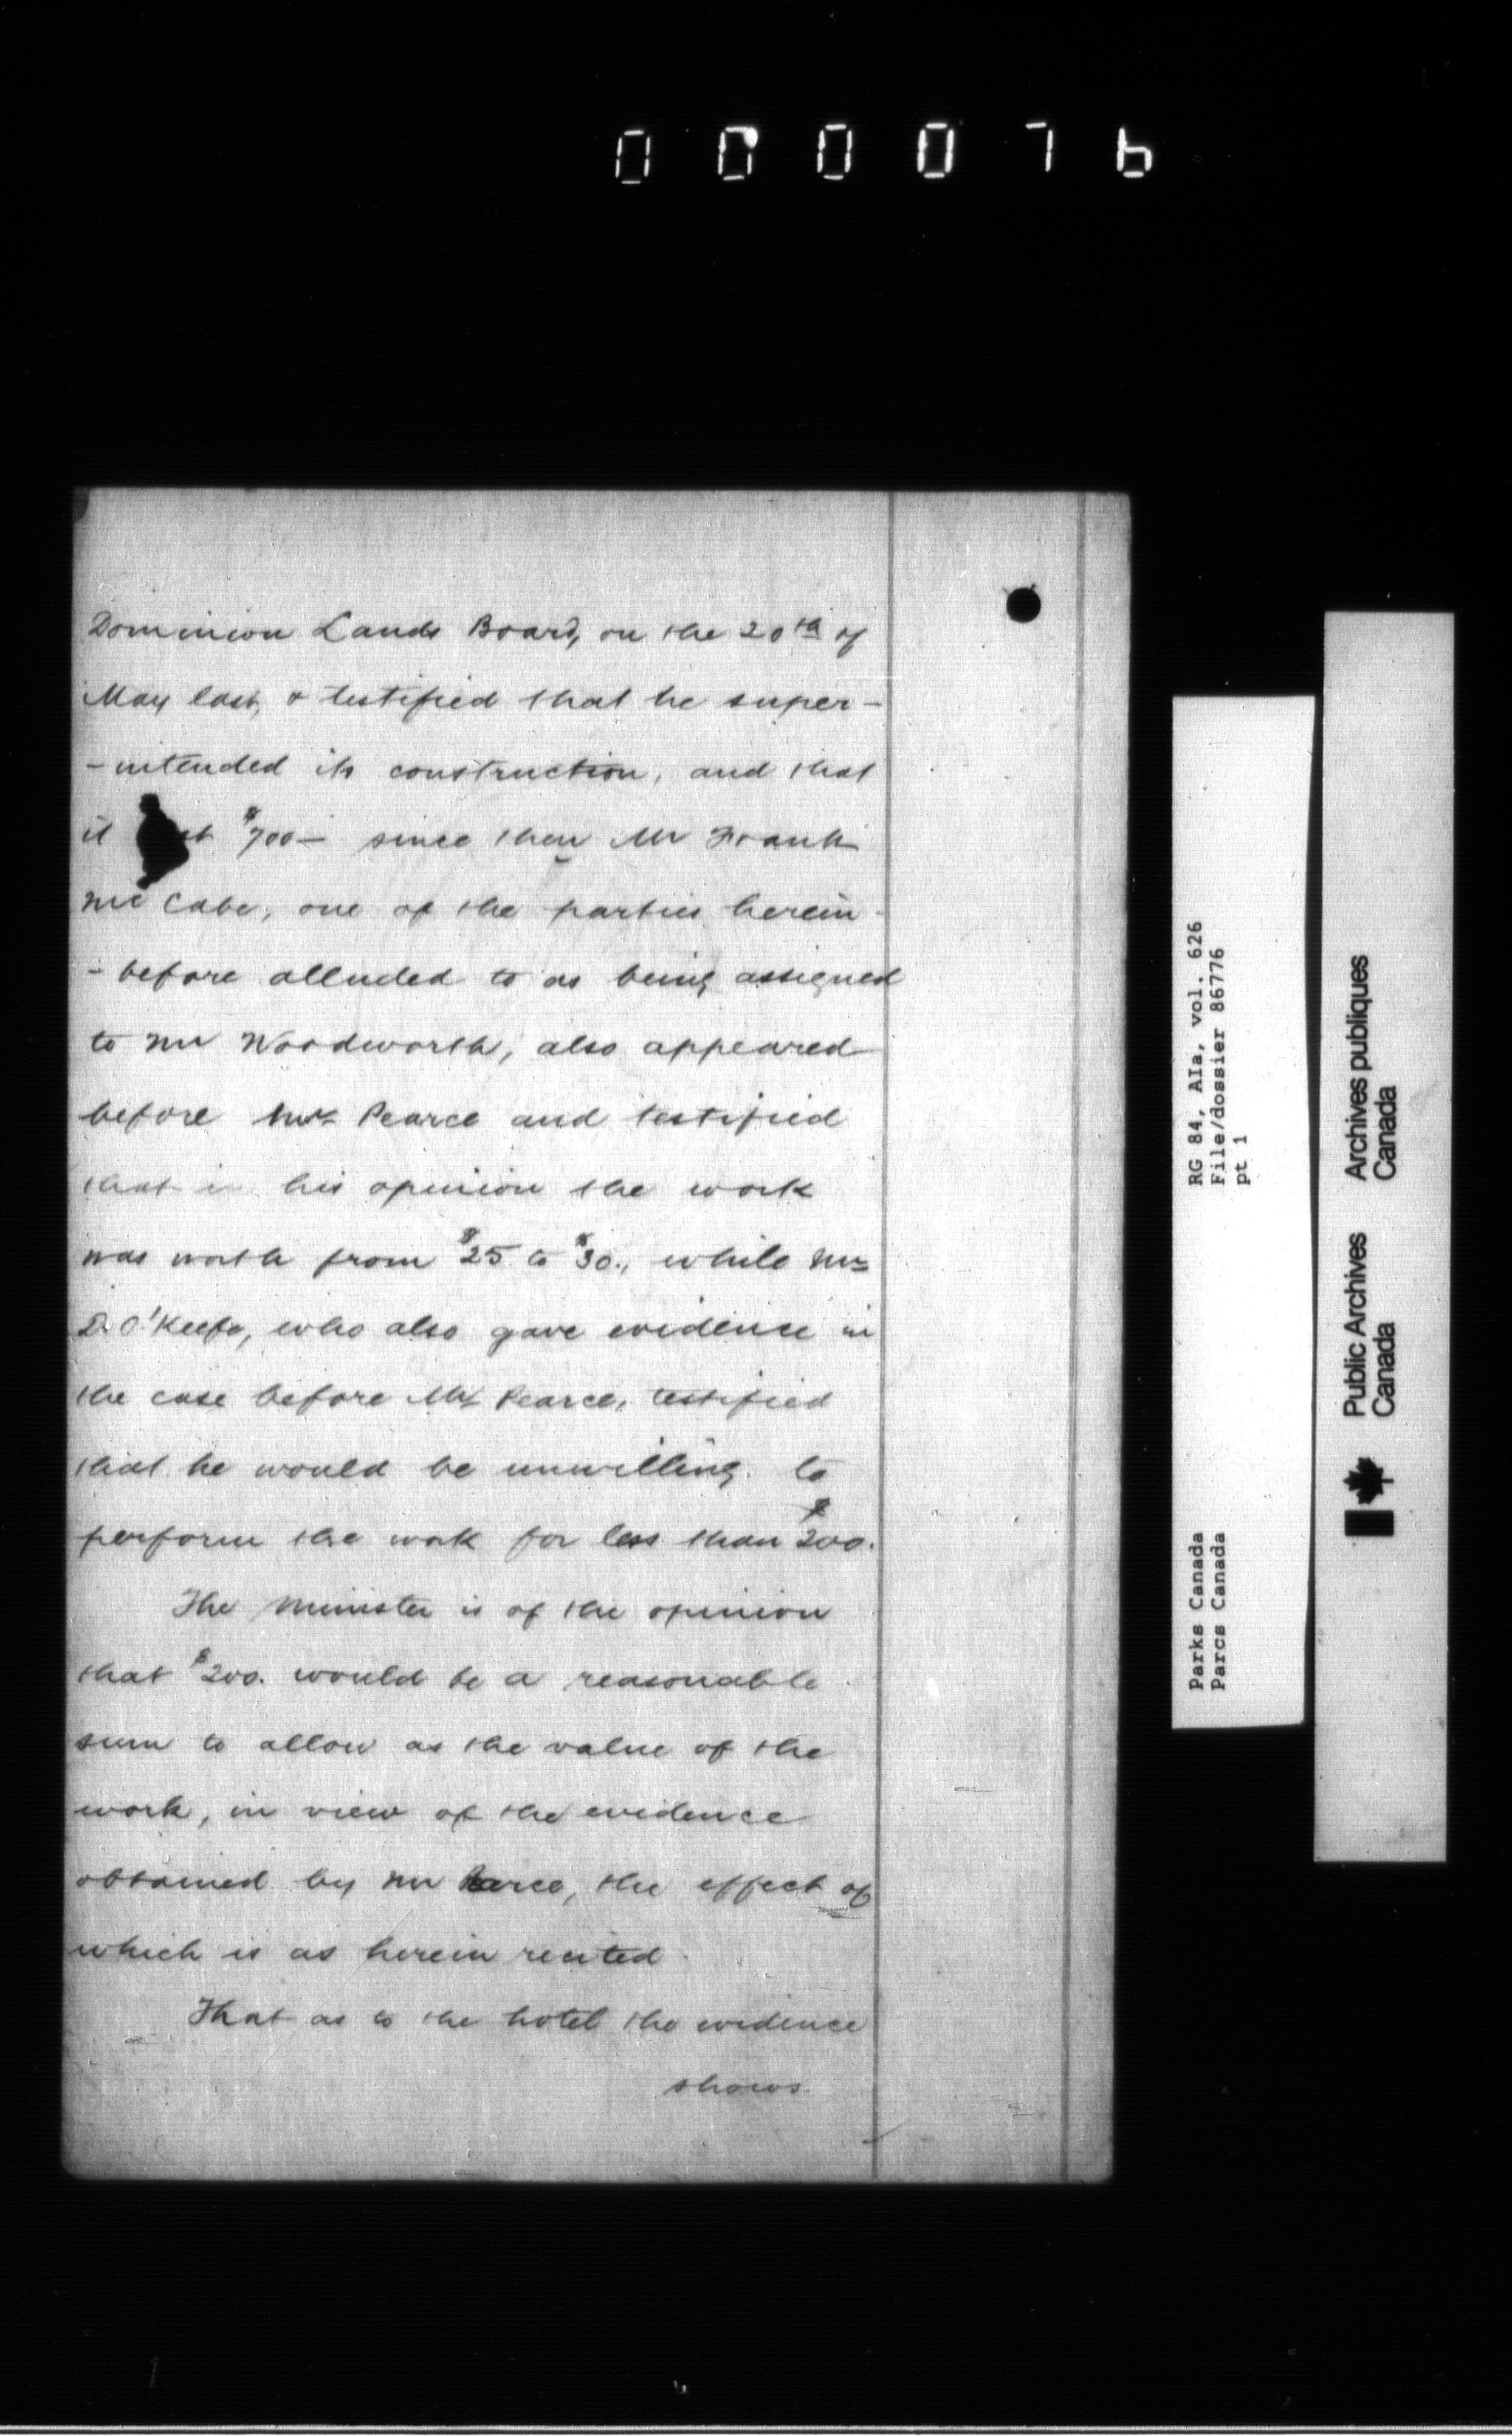 000076
Dominion Lands Board, on the 20th of
May last, & testified that he super-
-intended its construction, and that
it st $700— since then Mr Frank
McCabe, one of the parties herein-
-before alluded to as being assigned
to Mr Woodworth, also appeared
before Mr Pearce and testified
that in his opinion the work
was worth from $25 to $30., while Mr
D. O'Keefe, who also gave evidence in
the case before Mr Pearce, testified
that he would be unwilling to
perform the work for less than $200.
The Minister is of the opinion
that $200. would be a reasonable
sum to allow as the value of the
work, in view of the evidence
obtained by Mr Pearce, the effect of
which is as herein recited.
That as to the hotel the evidence
shows
RG 84, AIa, vol. 626
File/dossier 86776
pt 1
Parks Canada
Parcs Canada
Public Archives
Canada
Archives publiques
Canada